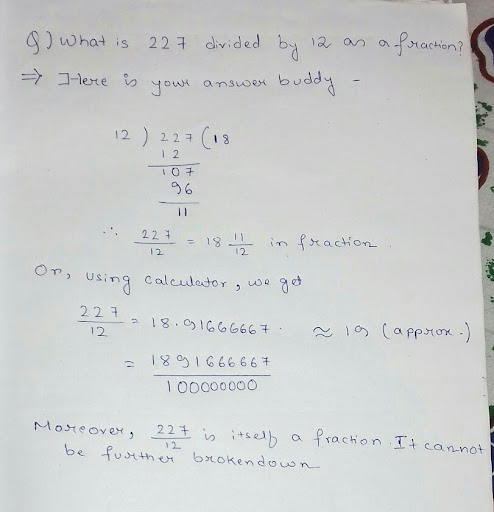 Q) What is 227 divided by 12 as a fraction?
⇒ Here is your answer buddy -
12 ) 227 ( 18
12
107
96
11
∴ 227/12 = 18 11/12 in fraction.
Or, using calculator, we get
227/12 = 18.91666667. ≈ 19 (approx.)
= 1891666667/100000000
Moreover, 227/12 is itself a fraction. It cannot
be further brokendown